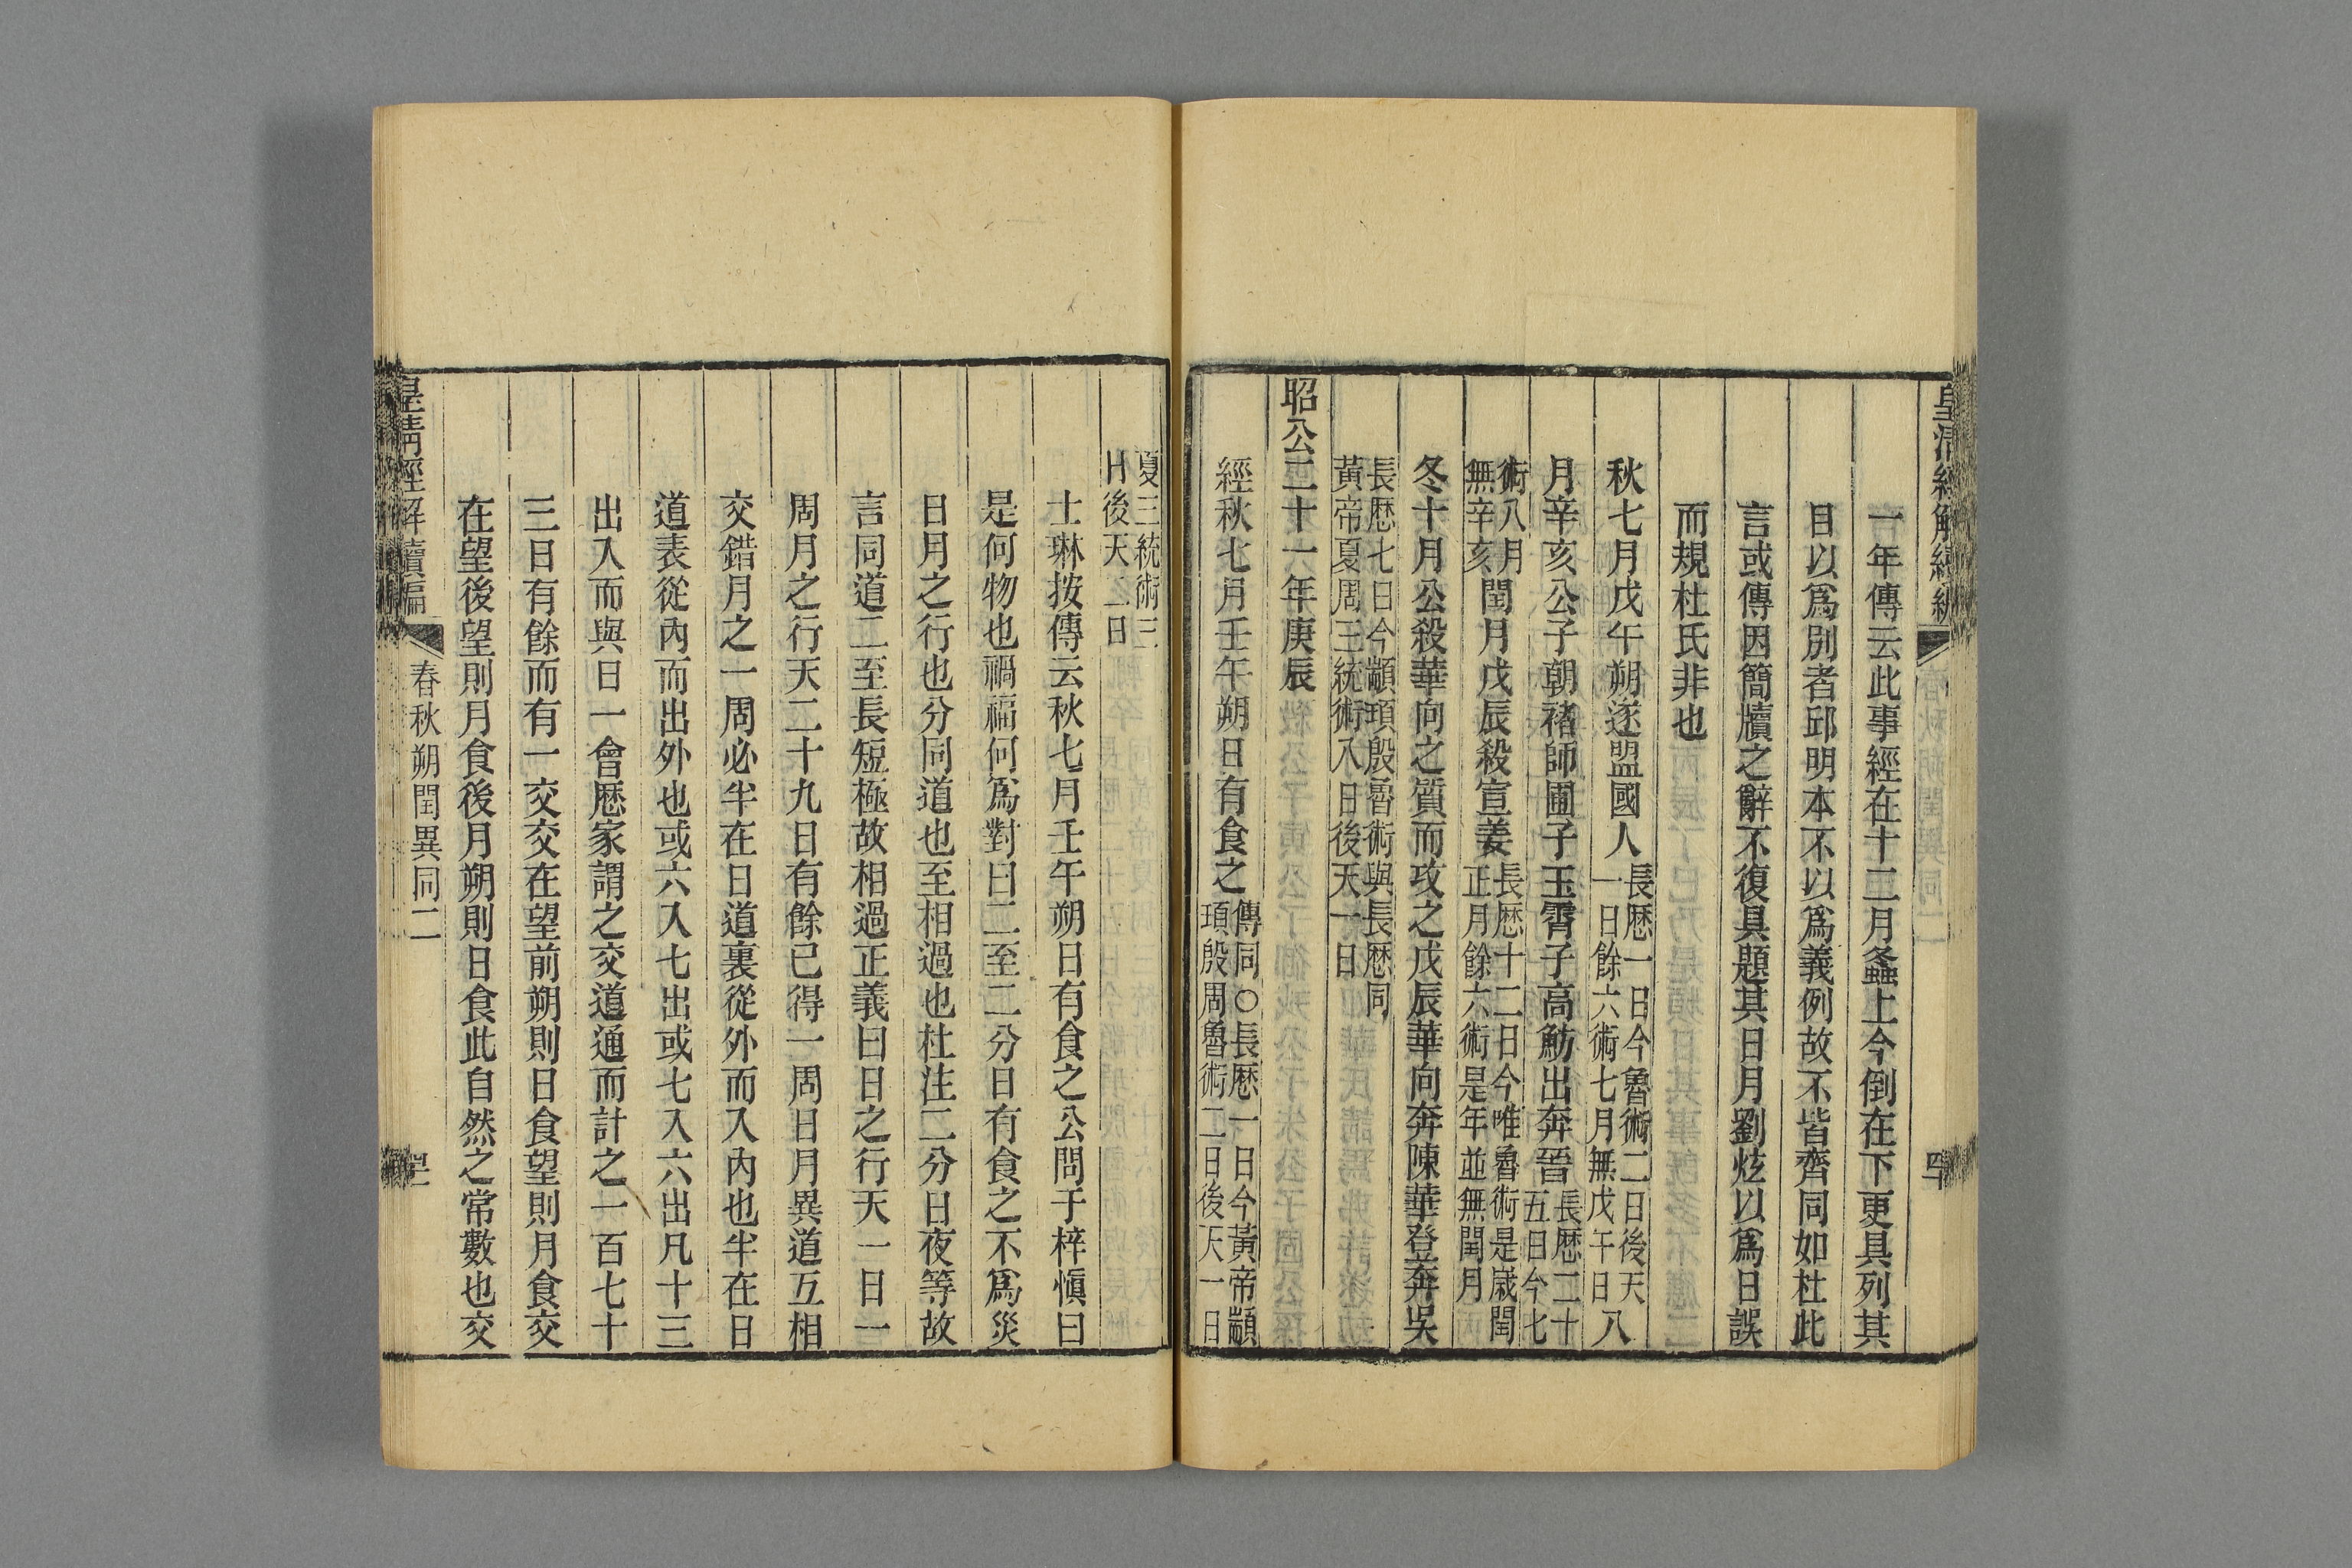 一年傳云此事經在十二月螽上今倒在下更具列其
月以爲别者邱明本不以爲義例故不皆齊同如杜此
言或傳因簡牘之辭不復具題其日月劉炫以爲日誤
而規杜氏非也
秋七月戊午朔遂盟國人長厯一日今魯術二日後天
一日餘六術七月無戊午日八
月辛亥公子朝褚師圃子玉霄子高魴出奔晉長厯二十
五日今七
術八月
無辛亥閏月戊辰殺宣姜長厯十二日今唯魯術是歲閏
正月餘六術是年並無閏月
冬十月公殺華向之質而攻之戊辰華向奔陳華登奔吳
長厯七日今顓頊殷魯術與長厯同
黃帝夏周三統術八日後天一日
昭公二十一年庚辰
經秋七月壬午朔日有食之傳同○長厯一日今黃帝顓
頊殷周魯術二日後天一日
夏三統術三
日後天二日
士琳按傳云秋七月壬午朔日有食之公問于梓愼曰
是何物也禍福何爲對曰二至二分日有食之不爲災
日月之行也分同道也至相過也杜注二分日夜等故
言同道二至長短極故相過正義曰日之行天一日一
周月之行天二十九日有餘已得一周日月異道互相
交錯月之一周必半在日道裏從外而入內也半在日
道表從內而出外也或六入七出或七入六出凡十三
出入而與日一會厯家謂之交道通而計之一百七十
三日有餘而有一交交在望前朔則日食望則月食交
在望後望則月食後月朔則日食此自然之常數也交
皇清經解續編
春秋朔閏異同二